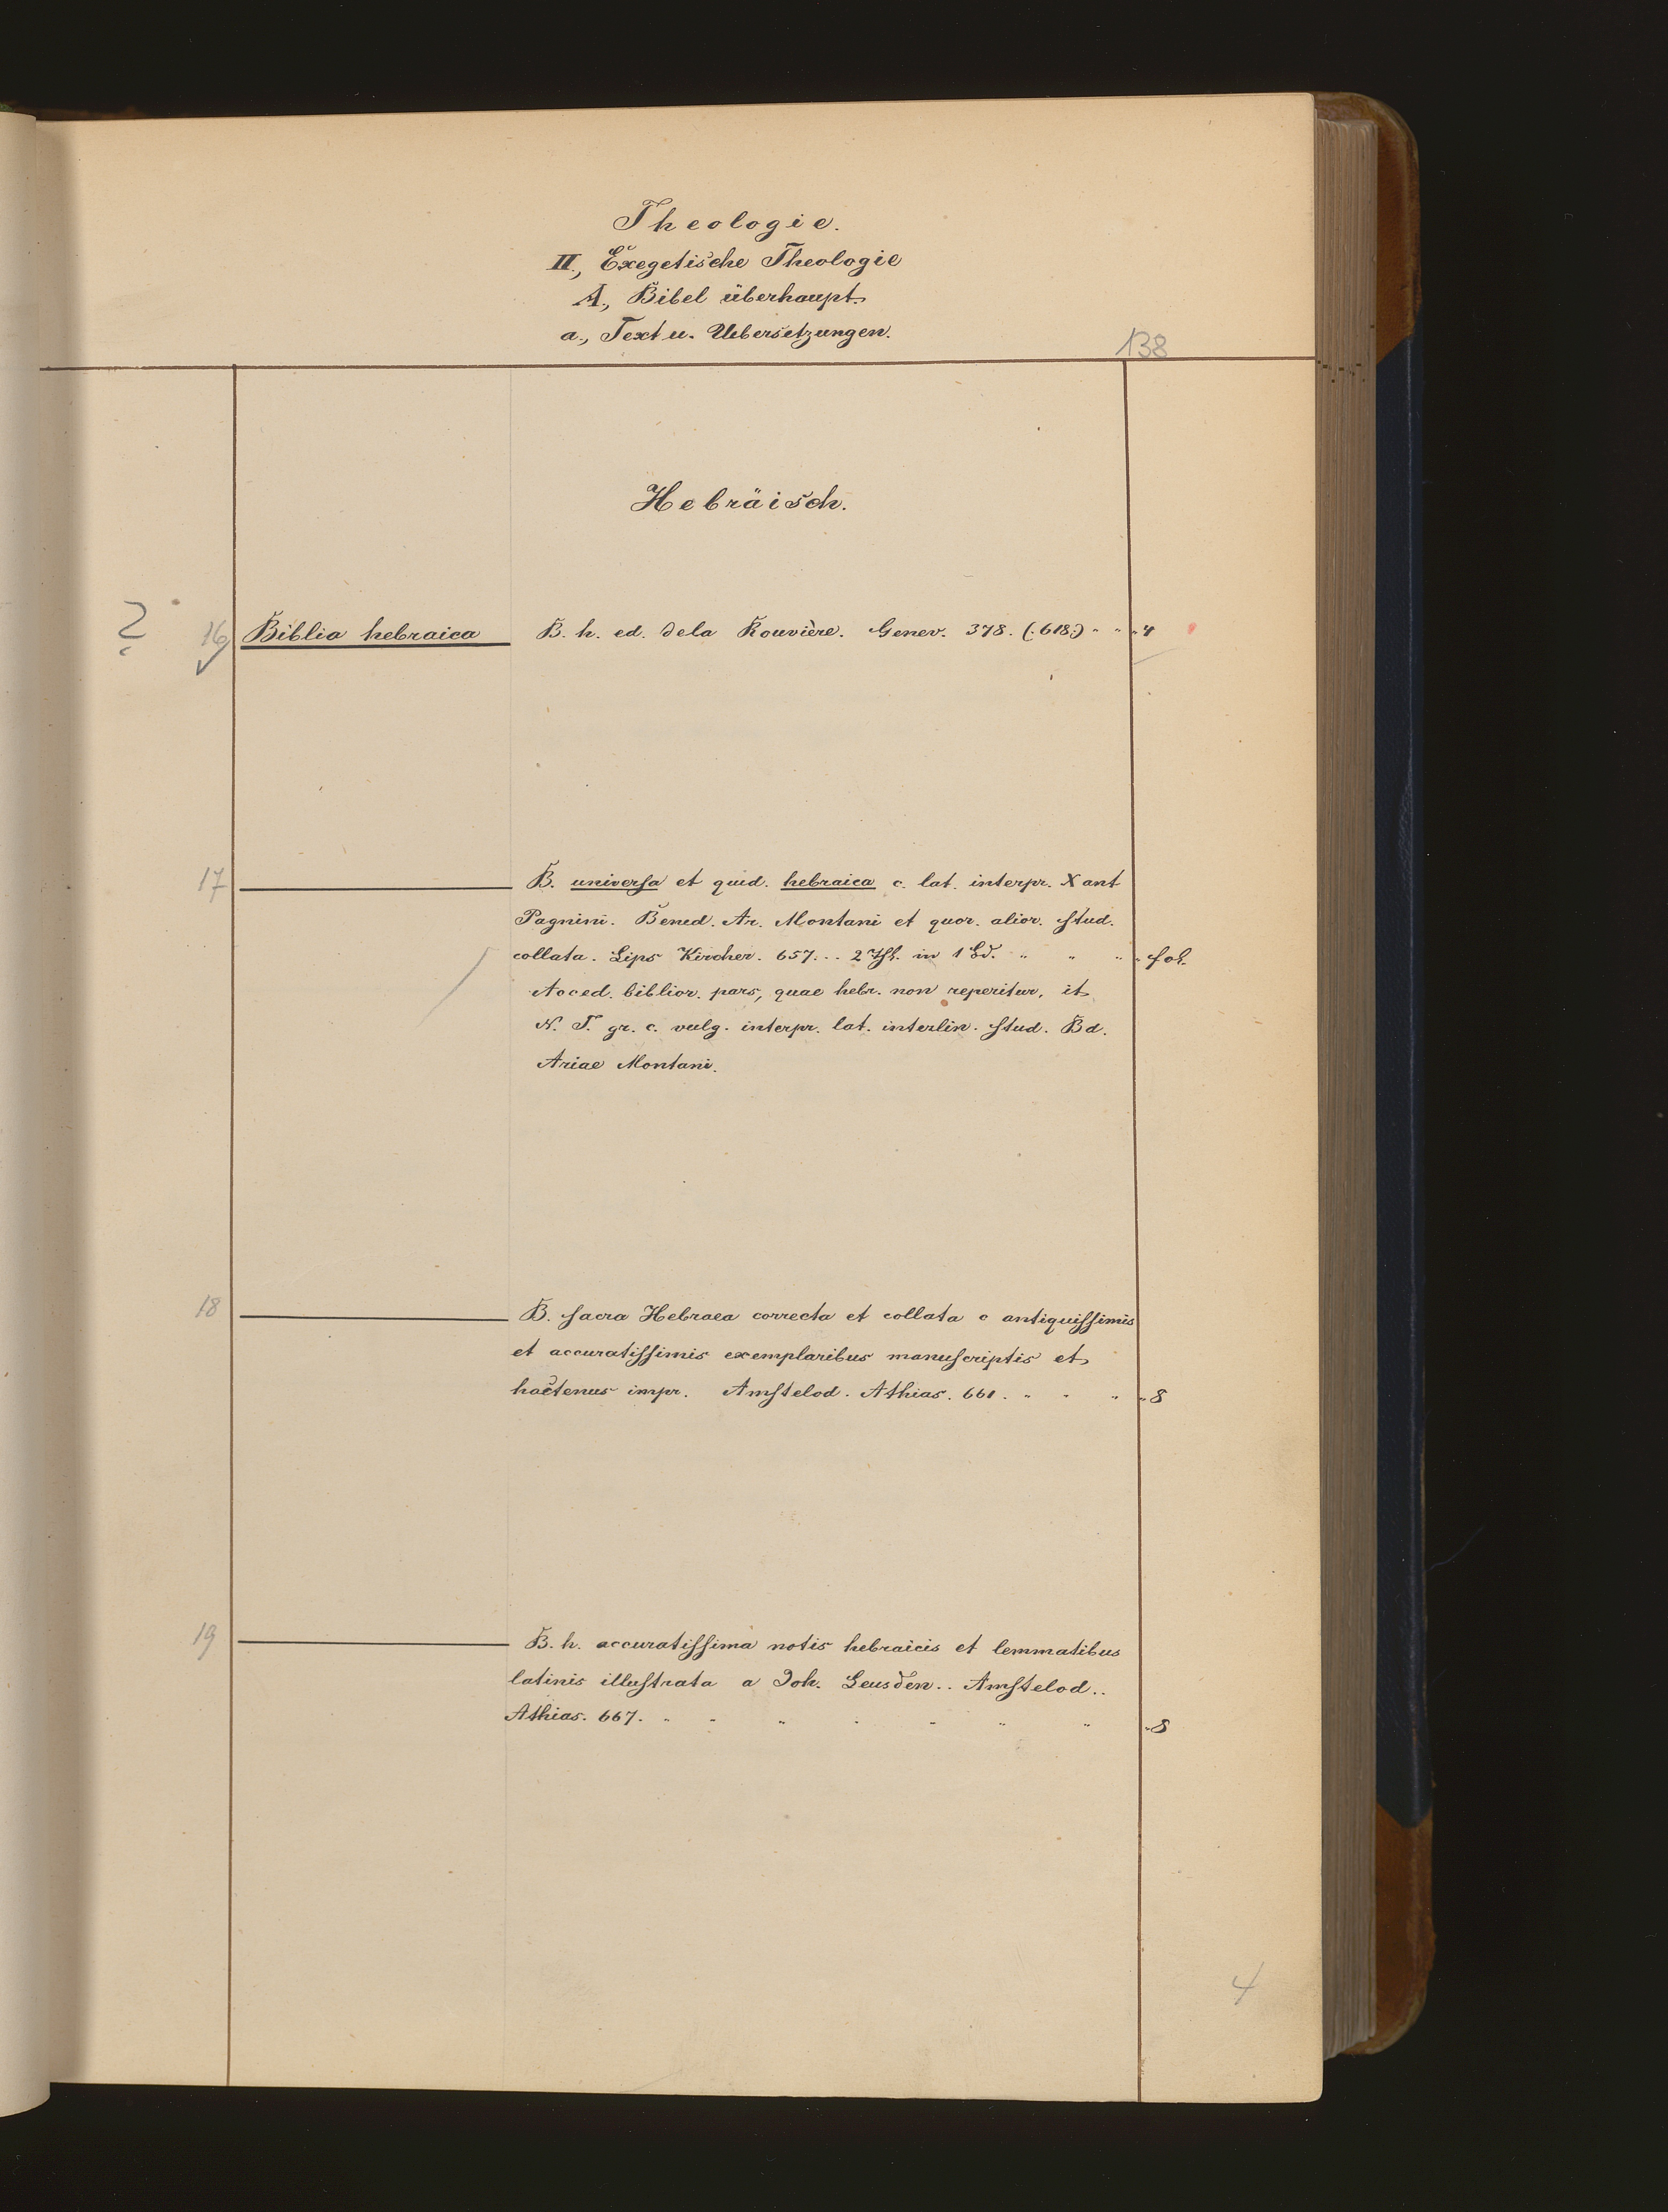 Theologie.
II., Exegetische Theologie
A., Bibel überhaupt.
a., Text u. Uebersetzungen.
138
Hebräisch.
? 16 Biblia hebraica B. h. ed. de la Rouvière. Genev. 378. (:618:) " " " 4
17 B. universa et quid. hebraica c. lat. interpr. Xant
Pagnini. Bened. Ar. Montani et quor. alior. stud.
collata. Lips Kircher. 657... 2 Thl. in 1 Bd. " " " " fol.
Acced. biblior. pars, quae hebr. non reperitur, it
N. T. gr. c. vulg. interpr. lat. interlin. stud. Bd.
Ariae Montani.
18 B. sacra Hebraea correcta et collata c antiquissimis
et accuratissimis exemplaribus manuscriptis et
hactenus impr. Amstelod. Athias. 661. " " " " 8
19 B. h. accuratissima notis hebraicis et lemmatibus
latinis illustrata a Joh. Leusden.. Amstelod..
Athias. 667. " " " " " " " " 8
4